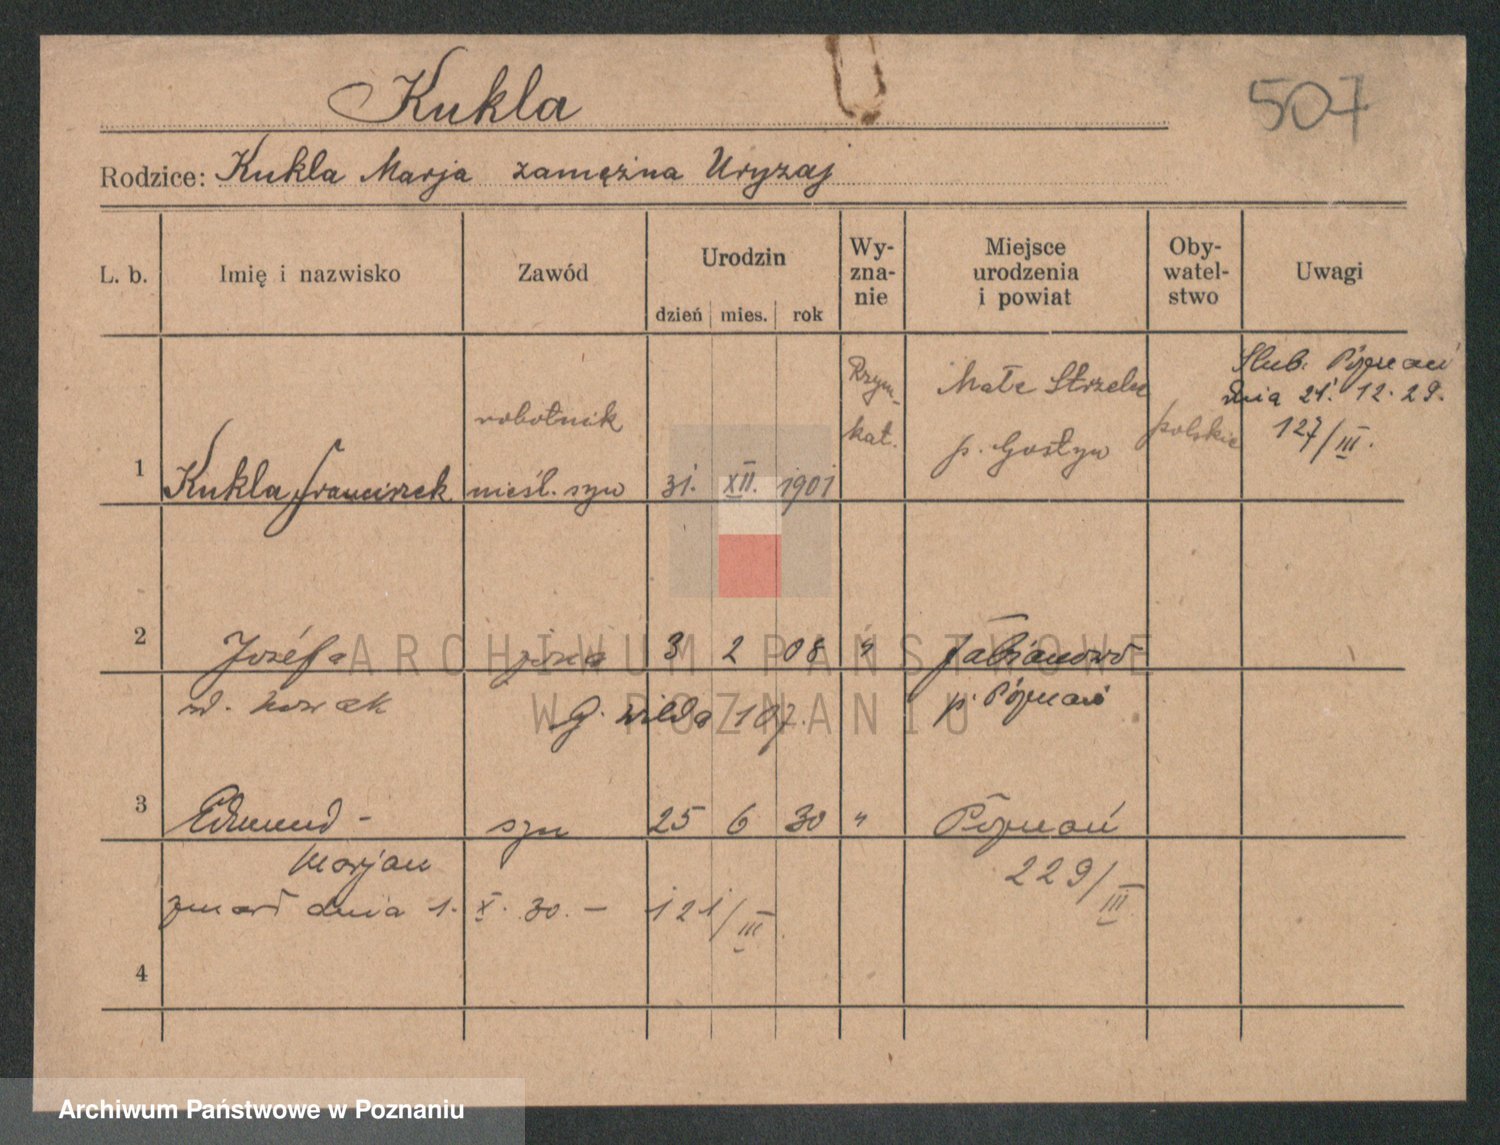 Kukla
507
Rodzice: Kukla Marja zamężna Uryzaj
L. b.
Imię i nazwisko
Zawód
Urodzin
dzień mies. rok
Wy-
zna-
nie
Miejsce
urodzenia
i powiat
Oby-
watel-
stwo
Uwagi
1
Kukla Franciszek
robotnik
nieśl. syn
31. XII. 1901
Rzym-
kat.
Małe Strzelce
p. Gostyn
polskie
Slub. Poznań
dnia 21. 12. 29.
127/III.
2 Józefa żona 3 2 08 " Fabianowo
ur. Nowak G. Wilda 107. p. Poznań
3 Edmund - syn 25 6 30 " Poznań
Marjan
229/III
zmarł dnia 1. X. 30. - 121/III.
4
ARCHIWUM PAŃSTWOWE
W POZNANIU
Archiwum Państwowe w Poznaniu